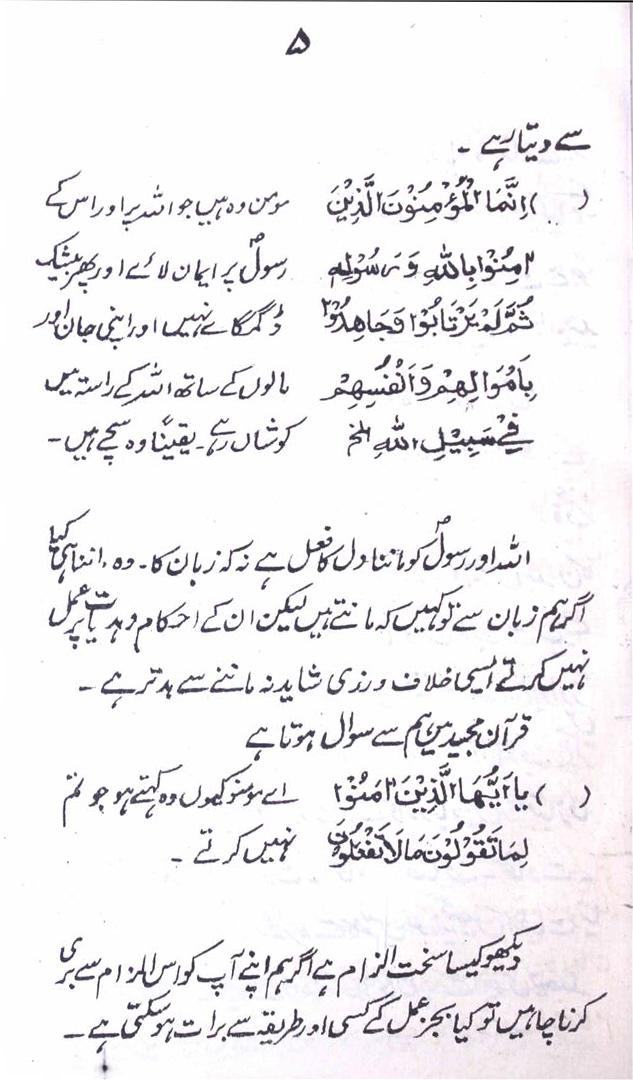 ۵
سے دیتا رہے ۔
( ) اِنَّمَا الْمُؤْمِنُوْنَ الَّذِیْنَ مومن وہ ہیں جو اللہ پر اور اس کے
اٰمِنُوْا بِاللهِ وَرَسُوْلِهٖ رسولؐ پر ایمان لائے اور پھر بیشک
ثُمَّ لَمْ یَرْتَابُوْا وَجَاهِدُوْا ڈگمگائے نہیں اور اپنی جان اور
بِاَمْوَالِهِمْ وَاَنْفُسِهِمْ مالوں کے ساتھ اللہ کے راستہ میں
فِیْ سَبِیْلِ اللهِ الخ کوشاں رہے ۔ یقیناً وہ سچے ہیں ۔
اللہ اور رسولؐ کو ماننا دل کا فعل ہے نہ کہ زبان کا ۔ وہ ماننا ہی کیا
اگر ہم زبان سے تو کہیں کہ مانتے ہیں لیکن ان کے احکام و ہدایت پر عمل
نہیں کرتے ایسی خلاف ورزی شاید نہ ماننے سے بدتر ہے ۔
قرآن مجید میں ہم سے سوال ہوتا ہے
( ) یا اَیُّهَا الَّذِیْنَ اٰمَنُوْا اے مومنو کیوں وہ کہتے ہو جو تم
لِمَا تَقُوْلُوْنَ مَالَا تَفْعَلُوْنَ نہیں کرتے ۔
دیکھو کیسا سخت الزام ہے اگر ہم اپنے آپ کو اس الزام سے بری
کرنا چاہیں تو کیا بجز عمل کے کسی اور طریقہ سے برات ہو سکتی ہے ۔